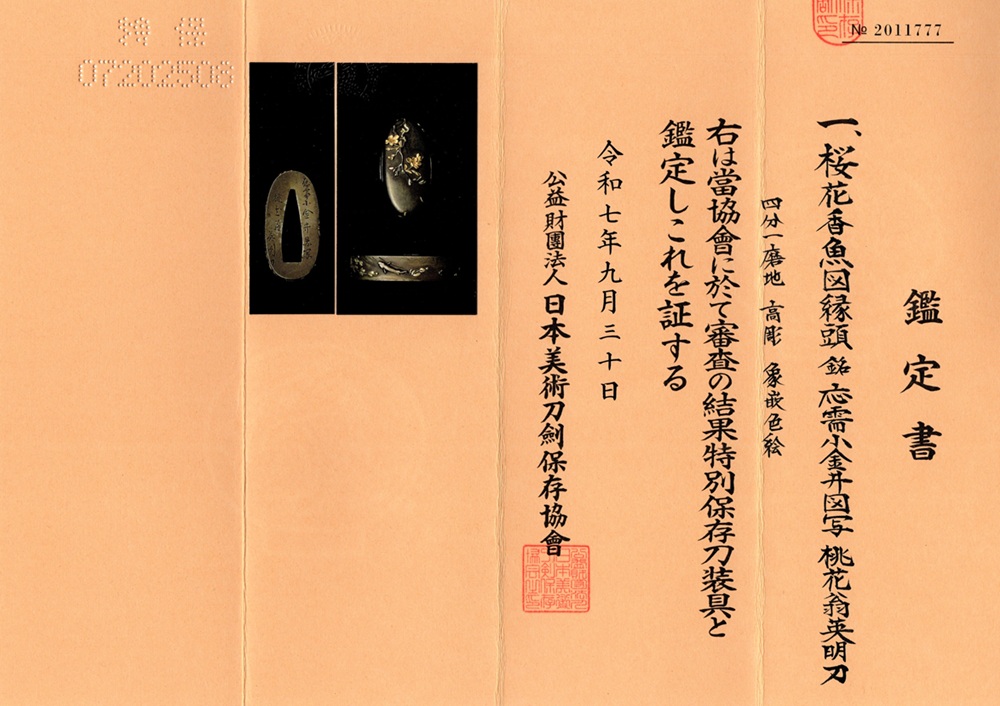 № 2011777
鑑定書
一、桜花香魚図縁頭 銘 応需小金井図写 桃花翁英明刀
四分一磨地 高彫 象嵌色絵
右は當協會に於て審査の結果特別保存刀装具と
鑑定しこれを証する
令和七年九月三十日
公益財團法人 日本美術刀劍保存協會
特保
07202506